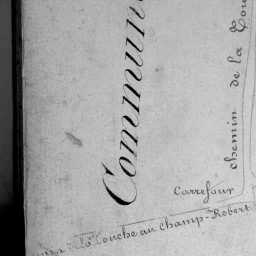 Commun
chemin de la
Carrefour
la Touche au champ-Robert